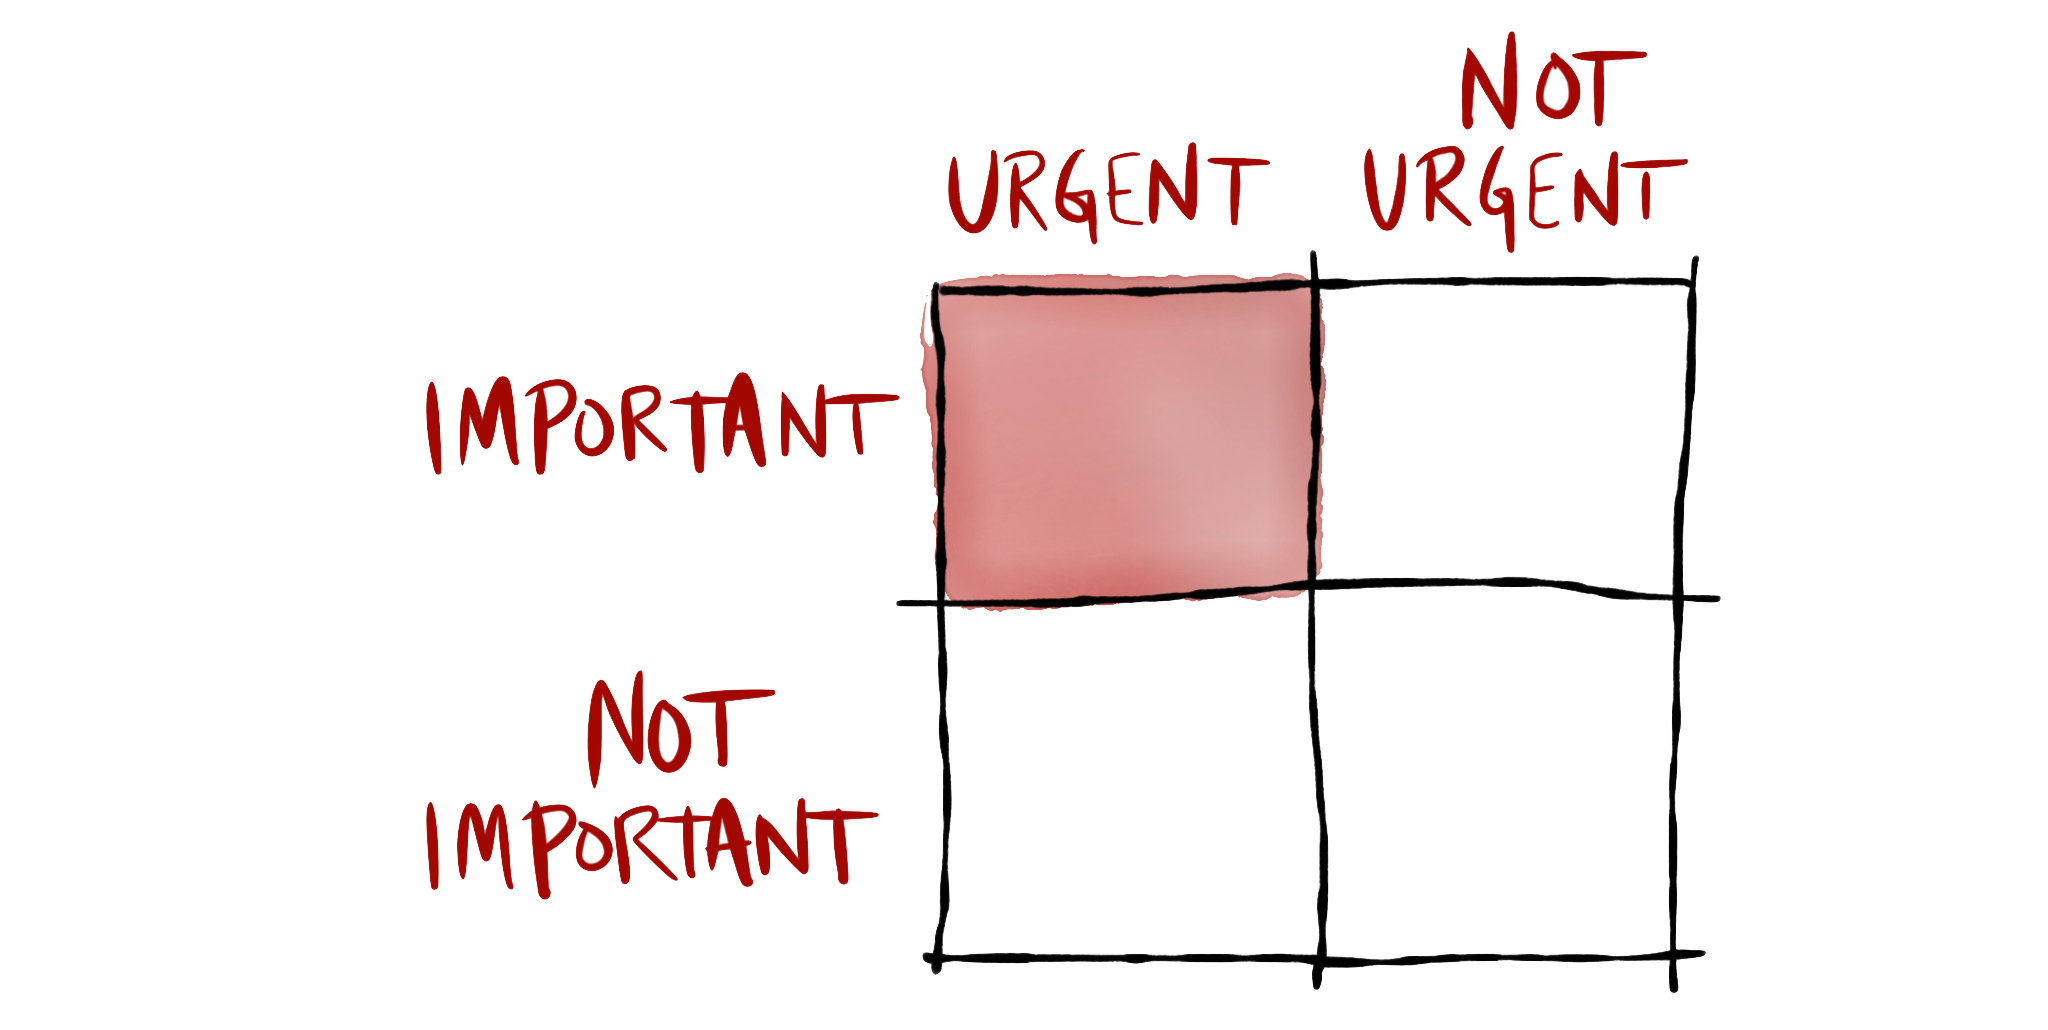 NOT
URGENT
URGENT
IMPORTANT
NOT
IMPORTANT